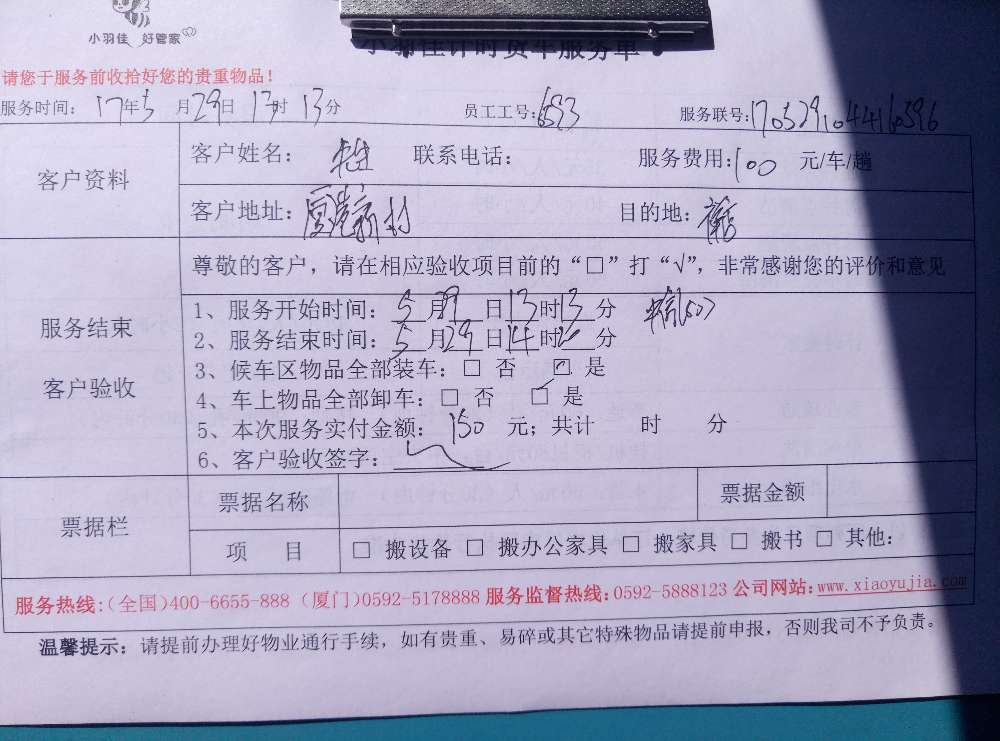 小羽佳 好管家
小羽佳计时货车服务单
请您于服务前收拾好您的贵重物品！
服务时间： 17年5月29日 13时13分 员工工号：6593 服务联号：
客户资料
客户姓名： 联系电话： 服务费用：100 元/车/趟
客户地址： 目的地：
尊敬的客户，请在相应验收项目前的“□”打“√”，非常感谢您的评价和意见
服务结束
客户验收
1、服务开始时间：5月29日13时13分
2、服务结束时间：5月29日14时20分
3、候车区物品全部装车：□ 否 ☑ 是
4、车上物品全部卸车：□ 否 ☑ 是
5、本次服务实付金额：150 元；共计 时 分
6、客户验收签字：
票据栏
票据名称 票据金额
项 目 □ 搬设备 □ 搬办公家具 □ 搬家具 □ 搬书 □ 其他：
服务热线：（全国）400-6655-888（厦门）0592-5178888 服务监督热线：0592-5888123 公司网站：www.xiaoyujia.com
温馨提示：请提前办理好物业通行手续，如有贵重、易碎或其它特殊物品请提前申报，否则我司不予负责。